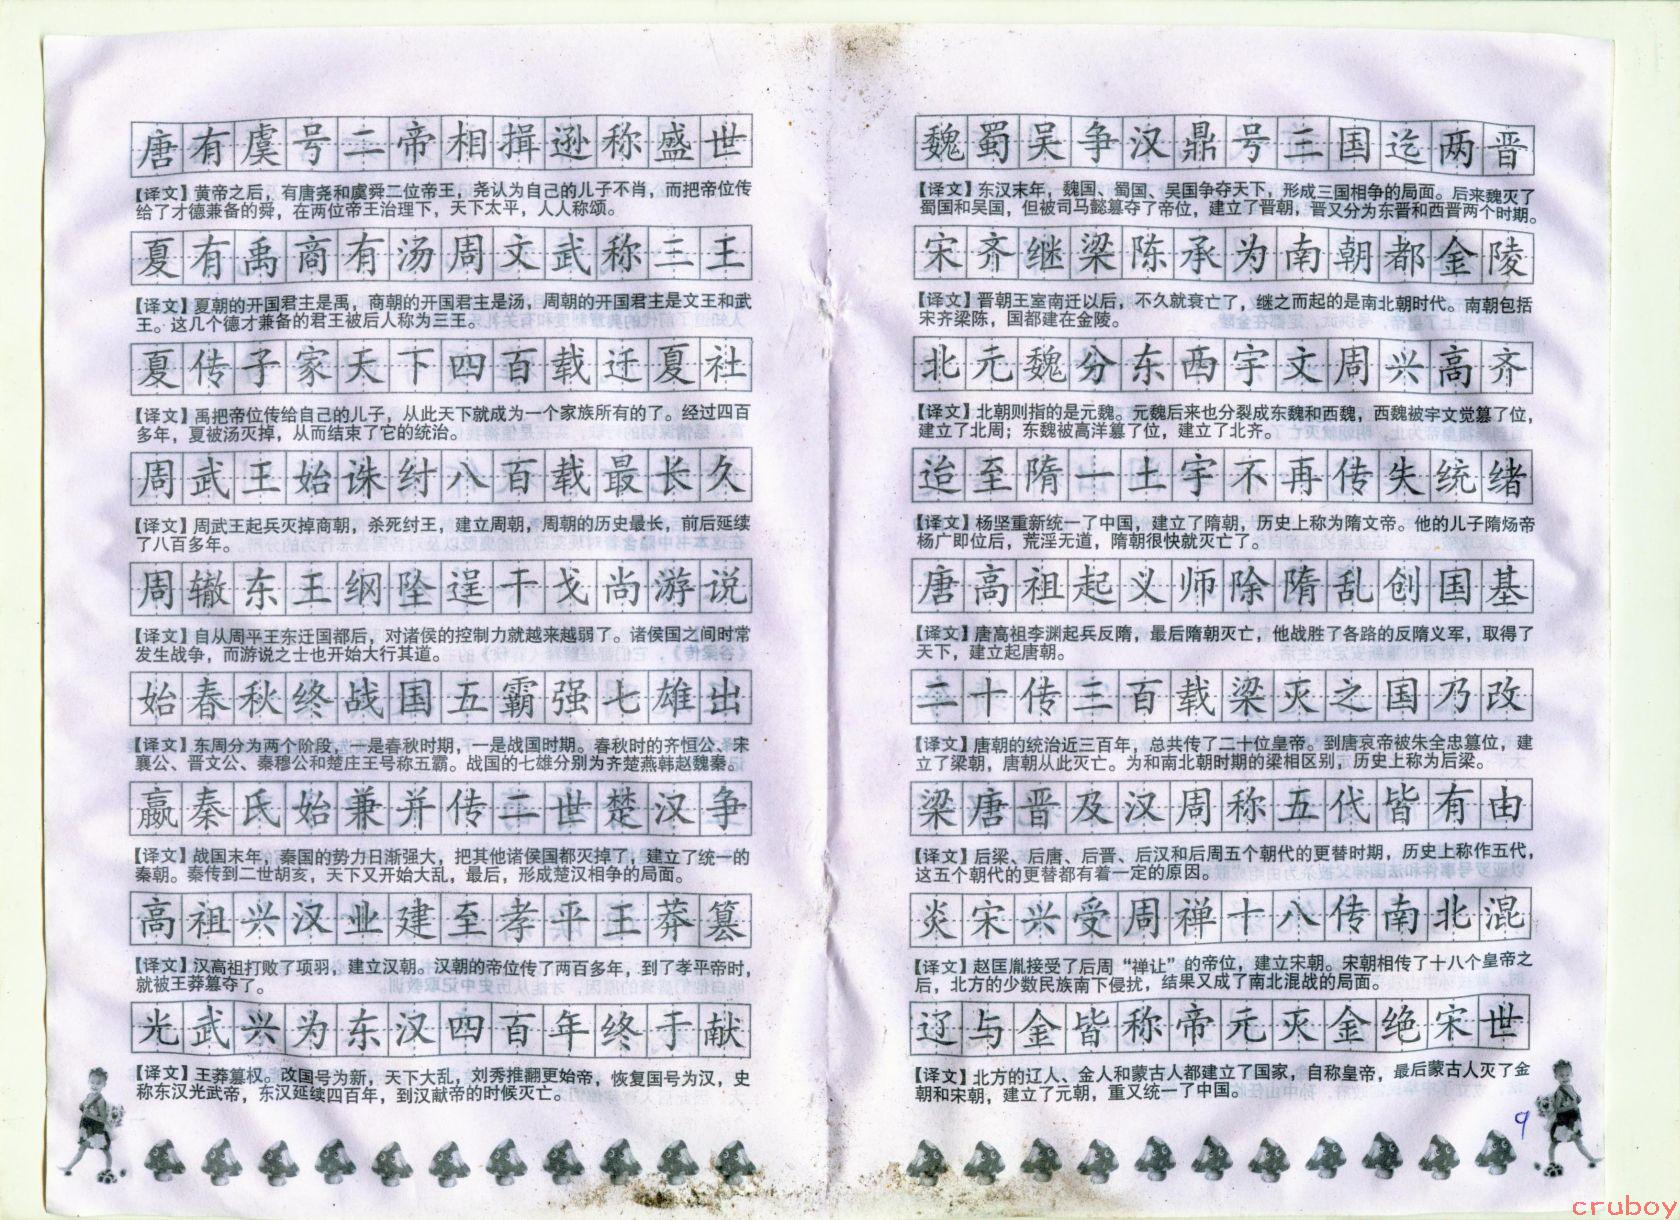 唐有虞号二帝相揖逊称盛世
【译文】黄帝之后，有唐尧和虞舜二位帝王，尧认为自己的儿子不肖，而把帝位传
给了才德兼备的舜，在两位帝王治理下，天下太平，人人称颂。
夏有禹商有汤周文武称三王
【译文】夏朝的开国君主是禹，商朝的开国君主是汤，周朝的开国君主是文王和武
王。这几个德才兼备的君王被后人称为三王。
夏传子家天下四百载迁夏社
【译文】禹把帝位传给自己的儿子，从此天下就成为一个家族所有的了。经过四百
多年，夏被汤灭掉，从而结束了它的统治。
周武王始诛纣八百载最长久
【译文】周武王起兵灭掉商朝，杀死纣王，建立周朝，周朝的历史最长，前后延续
了八百多年。
周辙东王纲坠逞干戈尚游说
【译文】自从周平王东迁国都后，对诸侯的控制力就越来越弱了。诸侯国之间时常
发生战争，而游说之士也开始大行其道。
始春秋终战国五霸强七雄出
【译文】东周分为两个阶段，一是春秋时期，一是战国时期。春秋时的齐恒公、宋
襄公、晋文公、秦穆公和楚庄王号称五霸。战国的七雄分别为齐楚燕韩赵魏秦。
嬴秦氏始兼并传二世楚汉争
【译文】战国末年，秦国的势力日渐强大，把其他诸侯国都灭掉了，建立了统一的
秦朝。秦传到二世胡亥，天下又开始大乱，最后，形成楚汉相争的局面。
高祖兴汉业建至孝平王莽篡
【译文】汉高祖打败了项羽，建立汉朝。汉朝的帝位传了两百多年，到了孝平帝时，
就被王莽篡夺了。
光武兴为东汉四百年终于献
【译文】王莽篡权。改国号为新，天下大乱，刘秀推翻更始帝，恢复国号为汉，史
称东汉光武帝，东汉延续四百年，到汉献帝的时候灭亡。
魏蜀吴争汉鼎号三国迄两晋
【译文】东汉末年，魏国、蜀国、吴国争夺天下，形成三国相争的局面。后来魏灭了
蜀国和吴国，但被司马懿篡夺了帝位，建立了晋朝，晋又分为东晋和西晋两个时期。
宋齐继梁陈承为南朝都金陵
【译文】晋朝王室南迁以后，不久就衰亡了，继之而起的是南北朝时代。南朝包括
宋齐梁陈，国都建在金陵。
北元魏分东西宇文周兴高齐
【译文】北朝则指的是元魏。元魏后来也分裂成东魏和西魏，西魏被宇文觉篡了位，
建立了北周；东魏被高洋篡了位，建立了北齐。
迨至隋一土宇不再传失统绪
【译文】杨坚重新统一了中国，建立了隋朝，历史上称为隋文帝。他的儿子隋炀帝
杨广即位后，荒淫无道，隋朝很快就灭亡了。
唐高祖起义师除隋乱创国基
【译文】唐高祖李渊起兵反隋，最后隋朝灭亡，他战胜了各路的反隋义军，取得了
天下，建立起唐朝。
二十传三百载梁灭之国乃改
【译文】唐朝的统治近三百年，总共传了二十位皇帝。到唐哀帝被朱全忠篡位，建
立了梁朝，唐朝从此灭亡。为和南北朝时期的梁相区别，历史上称为后梁。
梁唐晋及汉周称五代皆有由
【译文】后梁、后唐、后晋、后汉和后周五个朝代的更替时期，历史上称作五代，
这五个朝代的更替都有着一定的原因。
炎宋兴受周禅十八传南北混
【译文】赵匡胤接受了后周“禅让”的帝位，建立宋朝。宋朝相传了十八个皇帝之
后，北方的少数民族南下侵扰，结果又成了南北混战的局面。
辽与金皆称帝元灭金绝宋世
【译文】北方的辽人、金人和蒙古人都建立了国家，自称皇帝，最后蒙古人灭了金
朝和宋朝，建立了元朝，重又统一了中国。
9
cruboy